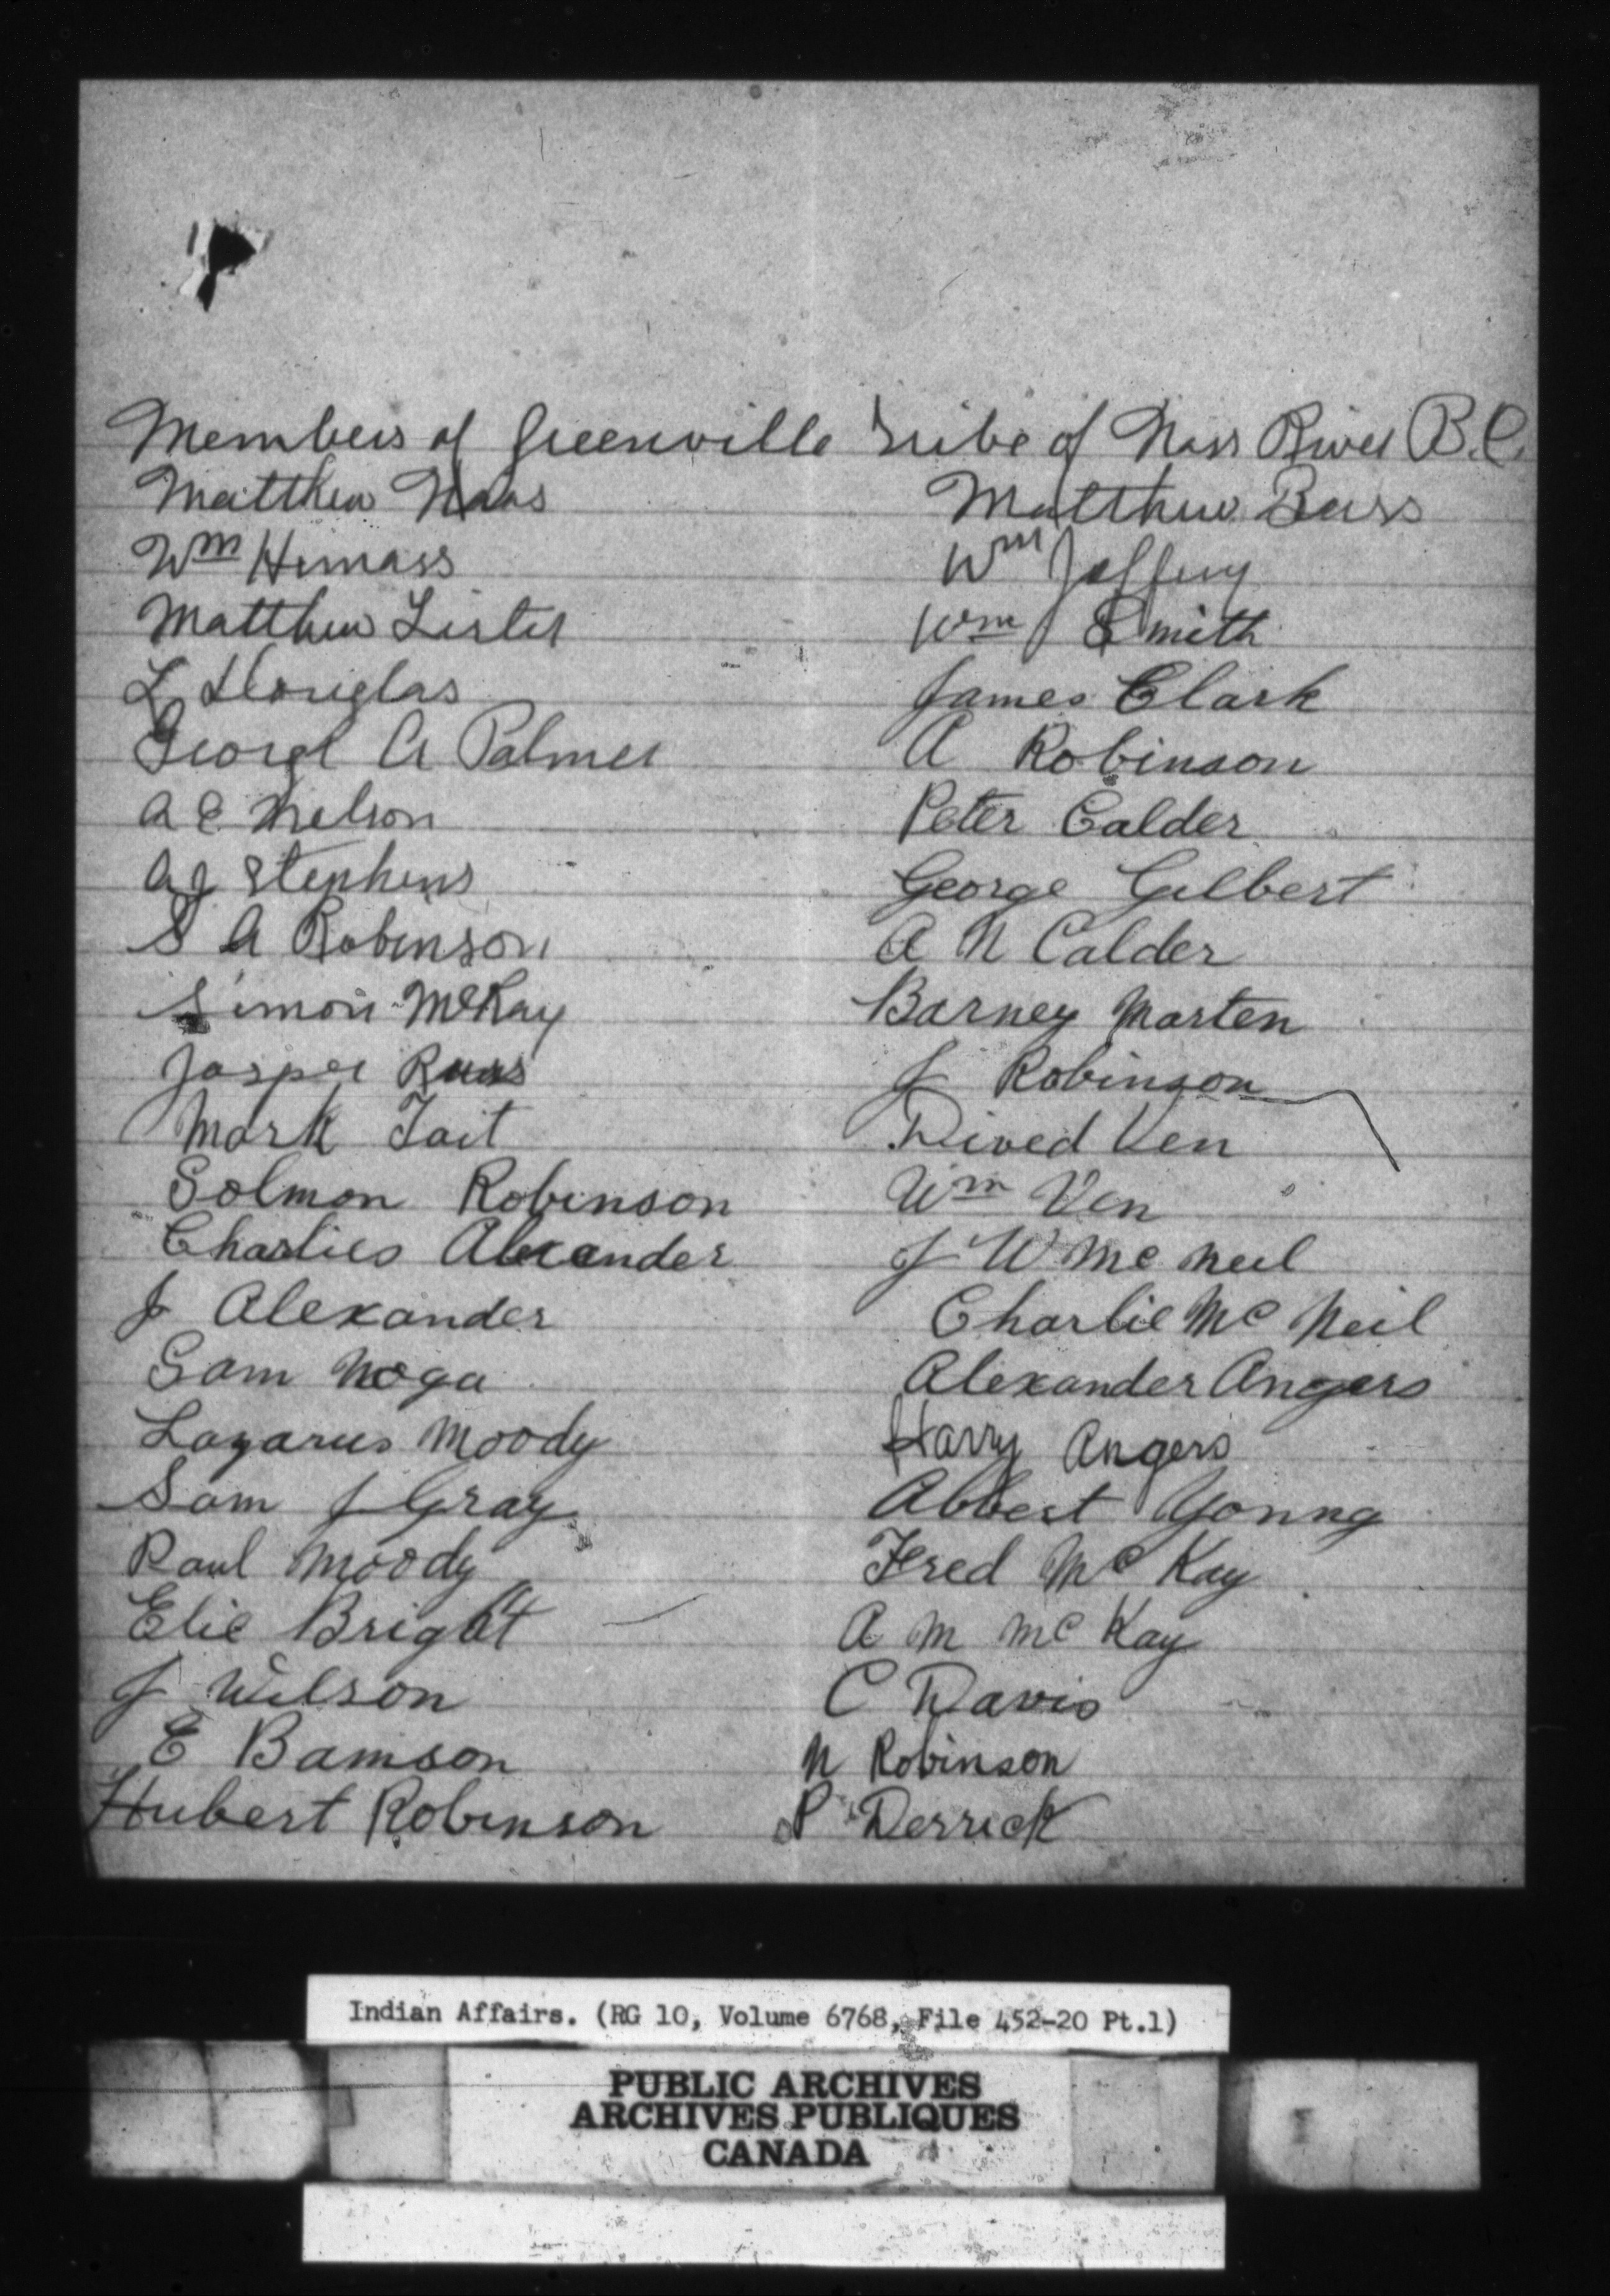 Members of Greenville Tribe of Nass River B.C.
Matthew Naas
Wm Himass
Matthew Lister
L Douglas
George A Palmer
A E Nelson
A J Stephens
S A Robinson
Simon McKay
Jasper Russ
Mark Tait
Solmon Robinson
Charlies Alexander
J Alexander
Sam Noga
Lazarus Moody
Sam J Gray
Paul Moody
Elie Bright
J Wilson
E Bamson
Hubert Robinson
Matthew Bass
Wm Jeffery
Wm Smith
James Clark
A Robinson
Peter Calder
George Gilbert
A N Calder
Barney Marten
J Robinson
Dived Ven
Wm Ven
J W Mc Neil
Charlie Mc Neil
Alexander Angers
Harry Angers
Albert Young
Fred Mc Kay
A M Mc Kay
C Davis
N Robinson
P Derrick
Indian Affairs. (RG 10, Volume 6768, File 452-20 Pt.1)
PUBLIC ARCHIVES
ARCHIVES PUBLIQUES
CANADA